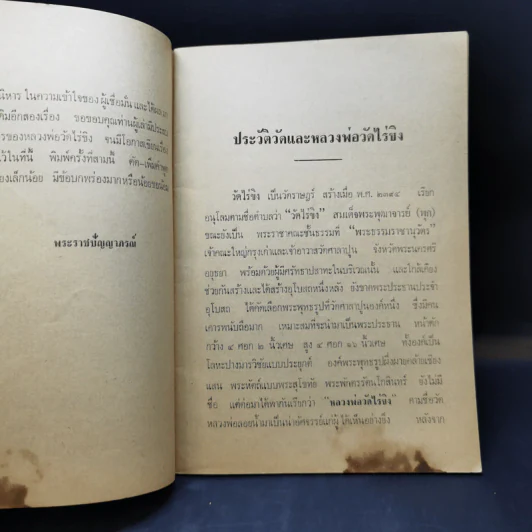 นิหาร ในความเข้าใจของ ผู้เชื่อมั่น และได้
ดิมอีกสองเรื่อง ขอขอบคุณท่านผู้เล่ามี
รของหลวงพ่อวัดไร่ขิง จนมีโอกาสเขียนเรื่อง
ว้ในที่นี้ พิมพ์ครั้งที่สามนี้ ตัด-เพิ่มคำพูด
องเล็กน้อย มีข้อบกพร่องมากหรือน้อยขออภัย
พระราชปัญญาภรณ์
ประวัติวัดและหลวงพ่อวัดไร่ขิง
วัดไร่ขิง เป็นวัดราษฎร์ สร้างเมื่อ พ.ศ. ๒๓๙๔ เรียก
อนุโลมตามชื่อตำบลว่า “วัดไร่ขิง” สมเด็จพระพุฒาจารย์ (พุก)
ขณะยังเป็น พระราชาคณะชั้นธรรมที่ “พระธรรมราชานุวัตร”
เจ้าคณะใหญ่กรุงเก่าและเจ้าอาวาสวัดศาลาปูน จังหวัดพระนครศรี
อยุธยา พร้อมด้วยผู้มีศรัทธาปสาทะในบริเวณนั้น และใกล้เคียง
ช่วยกันสร้างและได้สร้างอุโบสถหนึ่งหลัง ยังขาดพระประธานประจำ
อุโบสถ ได้คัดเลือกพระพุทธรูปที่วัดศาลาปูนองค์หนึ่ง ซึ่งมีคน
เคารพนับถือมาก เหมาะสมที่จะนำมาเป็นพระประธาน หน้าตัก
กว้าง ๔ ศอก ๒ นิ้วเศษ สูง ๔ ศอก ๑๖ นิ้วเศษ ทั้งองค์เป็น
โลหะปางมารวิชัยแบบประยุกต์ องค์พระพุทธรูปผึ่งผายคล้ายเชียง
แสน พระหัตถ์แบบพระสุโขทัย พระพักตร์รัตนโกสินทร์ ยังไม่มี
ชื่อ แต่ต่อมาได้พากันเรียกว่า “หลวงพ่อวัดไร่ขิง” ตามชื่อวัด
หลวงพ่อลอยน้ำมาเป็นน่าอัศจรรย์แก่ผู้ ได้เห็นอย่างยิ่ง หลังจาก